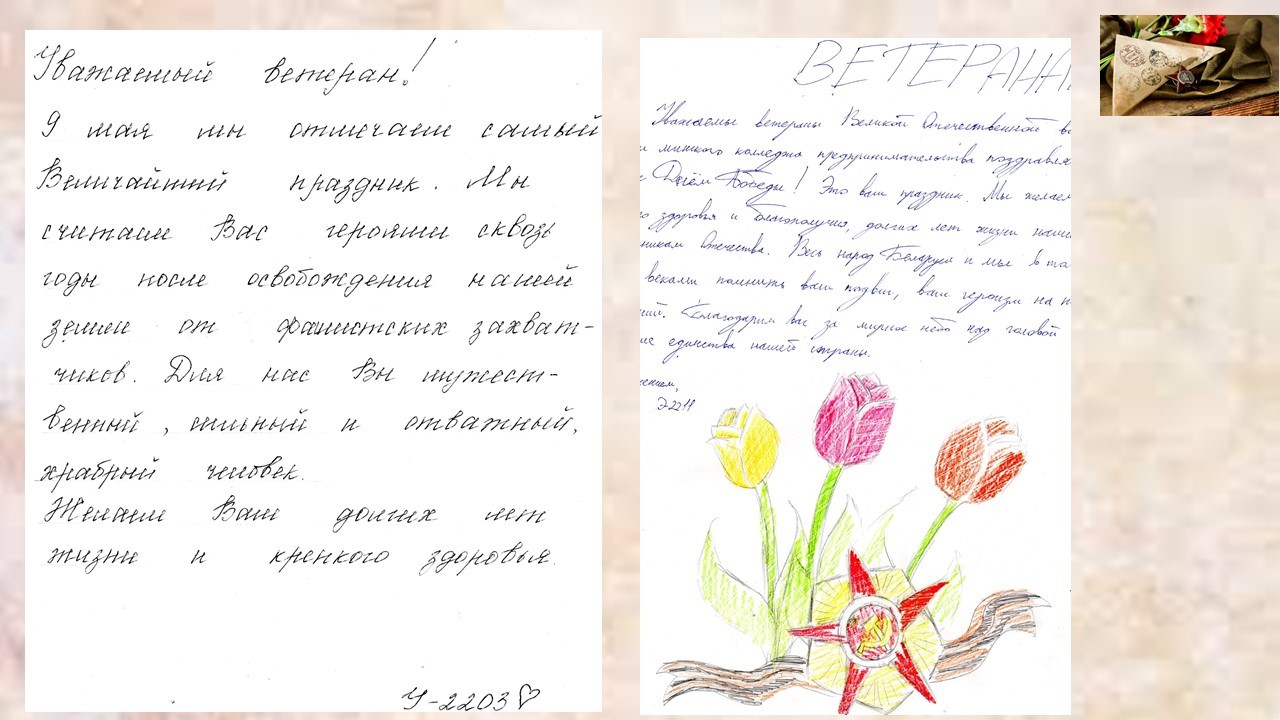 Уважаемый ветеран!
9 мая мы отмечаем самый
Величайший праздник. Мы
считаем Вас героями сквозь
годы после освобождения нашей
земли от фашистских захват-
чиков. Для нас Вы мужест-
венный, сильный и отважный,
храбрый человек.
Желаем Вам долгих лет
жизни и крепкого здоровья.
У-2203
ВЕТЕРАНА
Уважаемы ветераны Великой Отечественной в
минского колледжа предпринимательства поздравля
Днём Победы! Это ваш праздник. Мы желаем
го здоровья и благополучия, долгих лет жизни наши
никам Отечества. Весь народ Беларуси и мы в то
веками помнить ваш подвиг, ваш героизм на п
ний. Благодарим вас за мирное небо над головой
ие единства нашей страны.
ением,
Э-2211